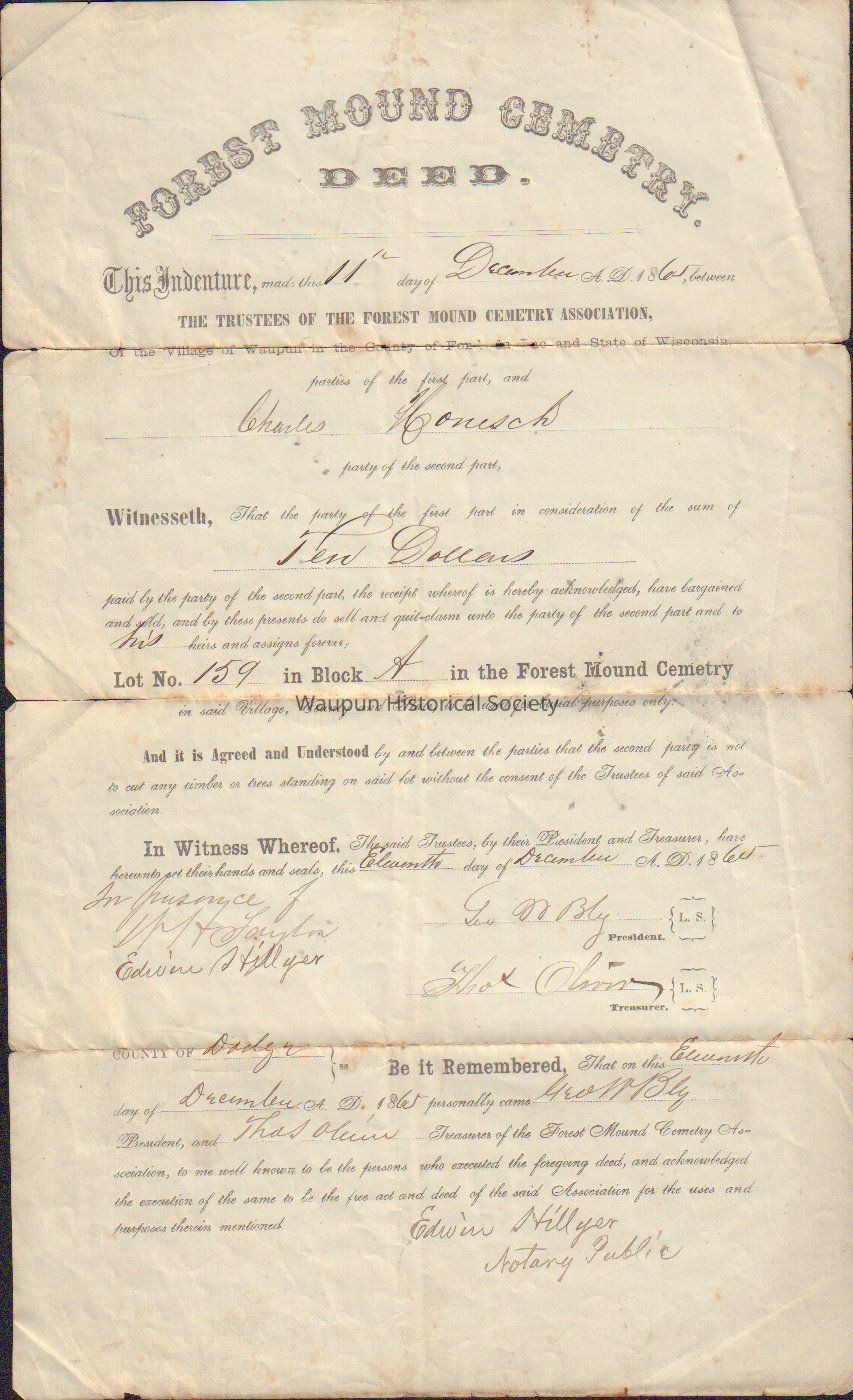 FOREST MOUND CEMETRY.
DEED.
This Indenture, made this 11th day of December A. D. 1865, between
THE TRUSTEES OF THE FOREST MOUND CEMETRY ASSOCIATION,
Of the Village of Waupun in the County of Fond du Lac and State of Wisconsin
parties of the first part, and
Charles Honesch
party of the second part,
Witnesseth, That the party of the first part in consideration of the sum of
Ten Dollars
paid by the party of the second part, the receipt whereof is hereby acknowledged, have bargained
and sold, and by these presents do sell and quit-claim unto the party of the second part and to
his heirs and assigns forever;
Lot No. 159 in Block A in the Forest Mound Cemetry
Waupun Historical Society
in said Village, County purposes only.
And it is Agreed and Understood by and between the parties that the second party is not
to cut any timber or trees standing on said lot without the consent of the Trustees of said As-
sociation.
In Witness Whereof. The said Trustees, by their President and Treasurer, have
hereunto set their hands and seals, this Eleventh day of December A. D. 1865
In presence of
Geo W Bly {L. S.}
President.
Edwin Hillyer
Thos Oliver {L. S.}
Treasurer.
COUNTY OF Dodge } ss Be it Remembered, That on this Eleventh
day of December A. D. 1865 personally came Geo W Bly
President, and Thos Oliver Treasurer of the Forest Mound Cemetry As-
sociation, to me well known to be the persons who executed the foregoing deed, and acknowledged
the execution of the same to be the free act and deed of the said Association for the uses and
purposes therein mentioned.
Edwin Hillyer
Notary Public